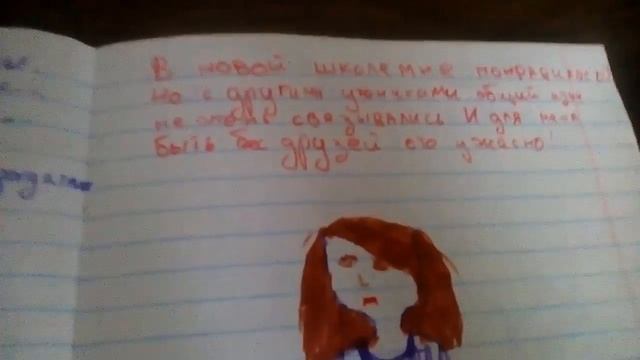 В новой школе мне понравилось
но с другими учениками общий язык
не связывались И для меня
быть без друзей это ужасно!